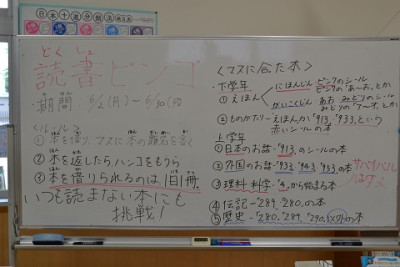 日本十進分類法
とくしょ
読書ビンゴ
期間 6/2(月)〜6/30(月)
〈ルール〉
①本を借り、マスに本の題名を書く
②本を返したら、ハンコをもらう
③本を借りられるのは、1日1冊
いつも読まない本にも
挑戦!
〈マスに合った本〉
下学年
①えほん
にほんじん ピンクのシール
ピンクの「あ〜お」とか
がいこくじん あお みどりのシール
みどりの「ア〜オ」とか
②ものがたり-えほんか「913」「933」という
赤いシールの本
上学年
①日本のお話-「913」のシールの本
②外国のお話-「933」「943」「953」の本
③理科・科学-「4」から始まる本
サバイバル
はダメ
④伝記-「289」、「280」の本
⑤歴史-「280」「289」「290」以外の本